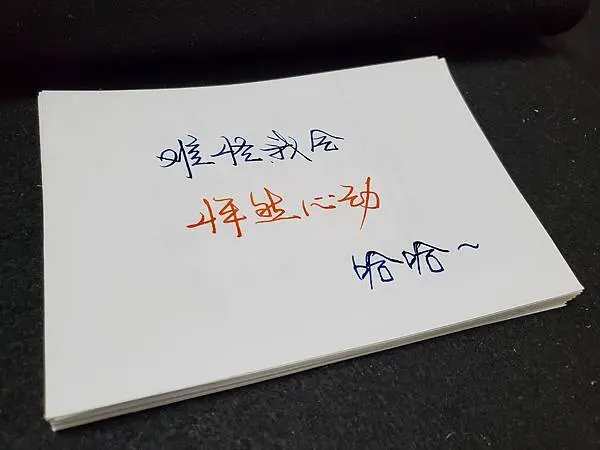 难怪我会
怦然心动
哈哈~